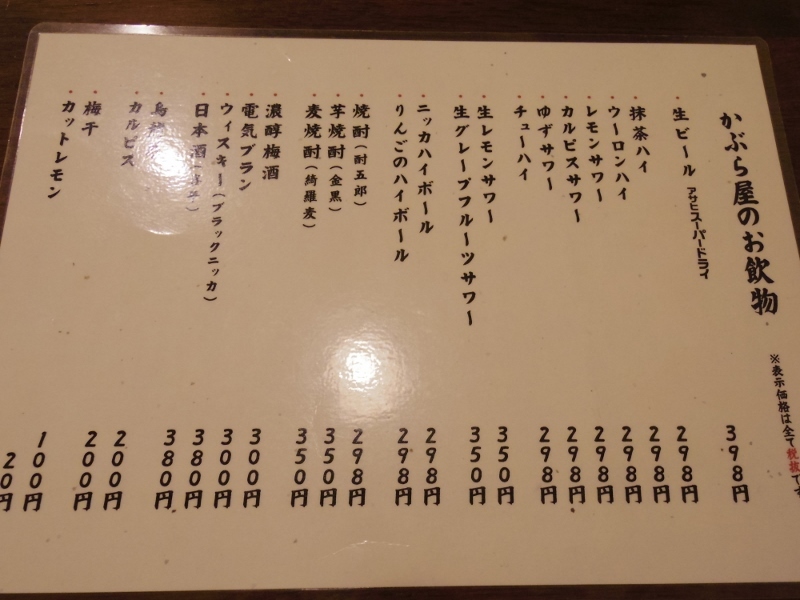 ※表示価格は全て税抜です
かぶら屋のお飲物
生ビール アサヒスーパードライ 398円
抹茶ハイ 298円
ウーロンハイ 298円
レモンサワー 298円
カルピスサワー 298円
ゆずサワー 298円
チューハイ 298円
生レモンサワー 350円
生グレープフルーツサワー 350円
ニッカハイボール 298円
りんごのハイボール 298円
焼酎(酎五郎) 298円
芋焼酎(金黒) 350円
麦焼酎(綺羅麦) 350円
濃醇梅酒 300円
電気ブラン 300円
ウィスキー(ブラックニッカ) 380円
日本酒 380円
200円
カルピス 200円
梅干 100円
カットレモン 20円